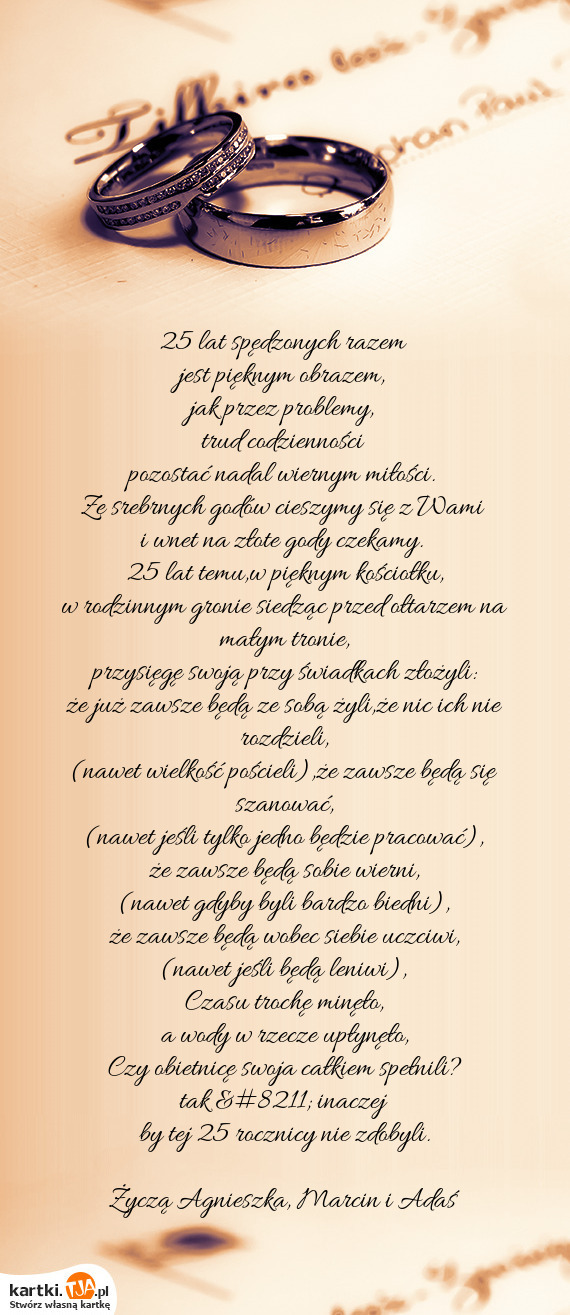 25 lat spędzonych razem
jest pięknym obrazem,
jak przez problemy,
trud codzienności
pozostać nadal wiernym miłości.
Ze srebrnych godów cieszymy się z Wami
i wnet na złote gody czekamy.
25 lat temu,w pięknym kościołku,
w rodzinnym gronie siedząc przed ołtarzem na
małym tronie,
przysięgę swoją przy świadkach złożyli:
że już zawsze będą ze sobą żyli,że nic ich nie
rozdzieli,
(nawet wielkość pościeli) ,że zawsze będą się
szanować,
(nawet jeśli tylko jedno będzie pracować) ,
że zawsze będą sobie wierni,
(nawet gdyby byli bardzo biedni) ,
że zawsze będą wobec siebie uczciwi,
(nawet jeśli będą leniwi) ,
Czasu trochę minęło,
a wody w rzecze upłynęło,
Czy obietnicę swoja całkiem spełnili?
tak &#8211; inaczej
by tej 25 rocznicy nie zdobyli.
Życzą Agnieszka, Marcin i Adaś
kartki.TJA.pl
Stwórz własną kartkę